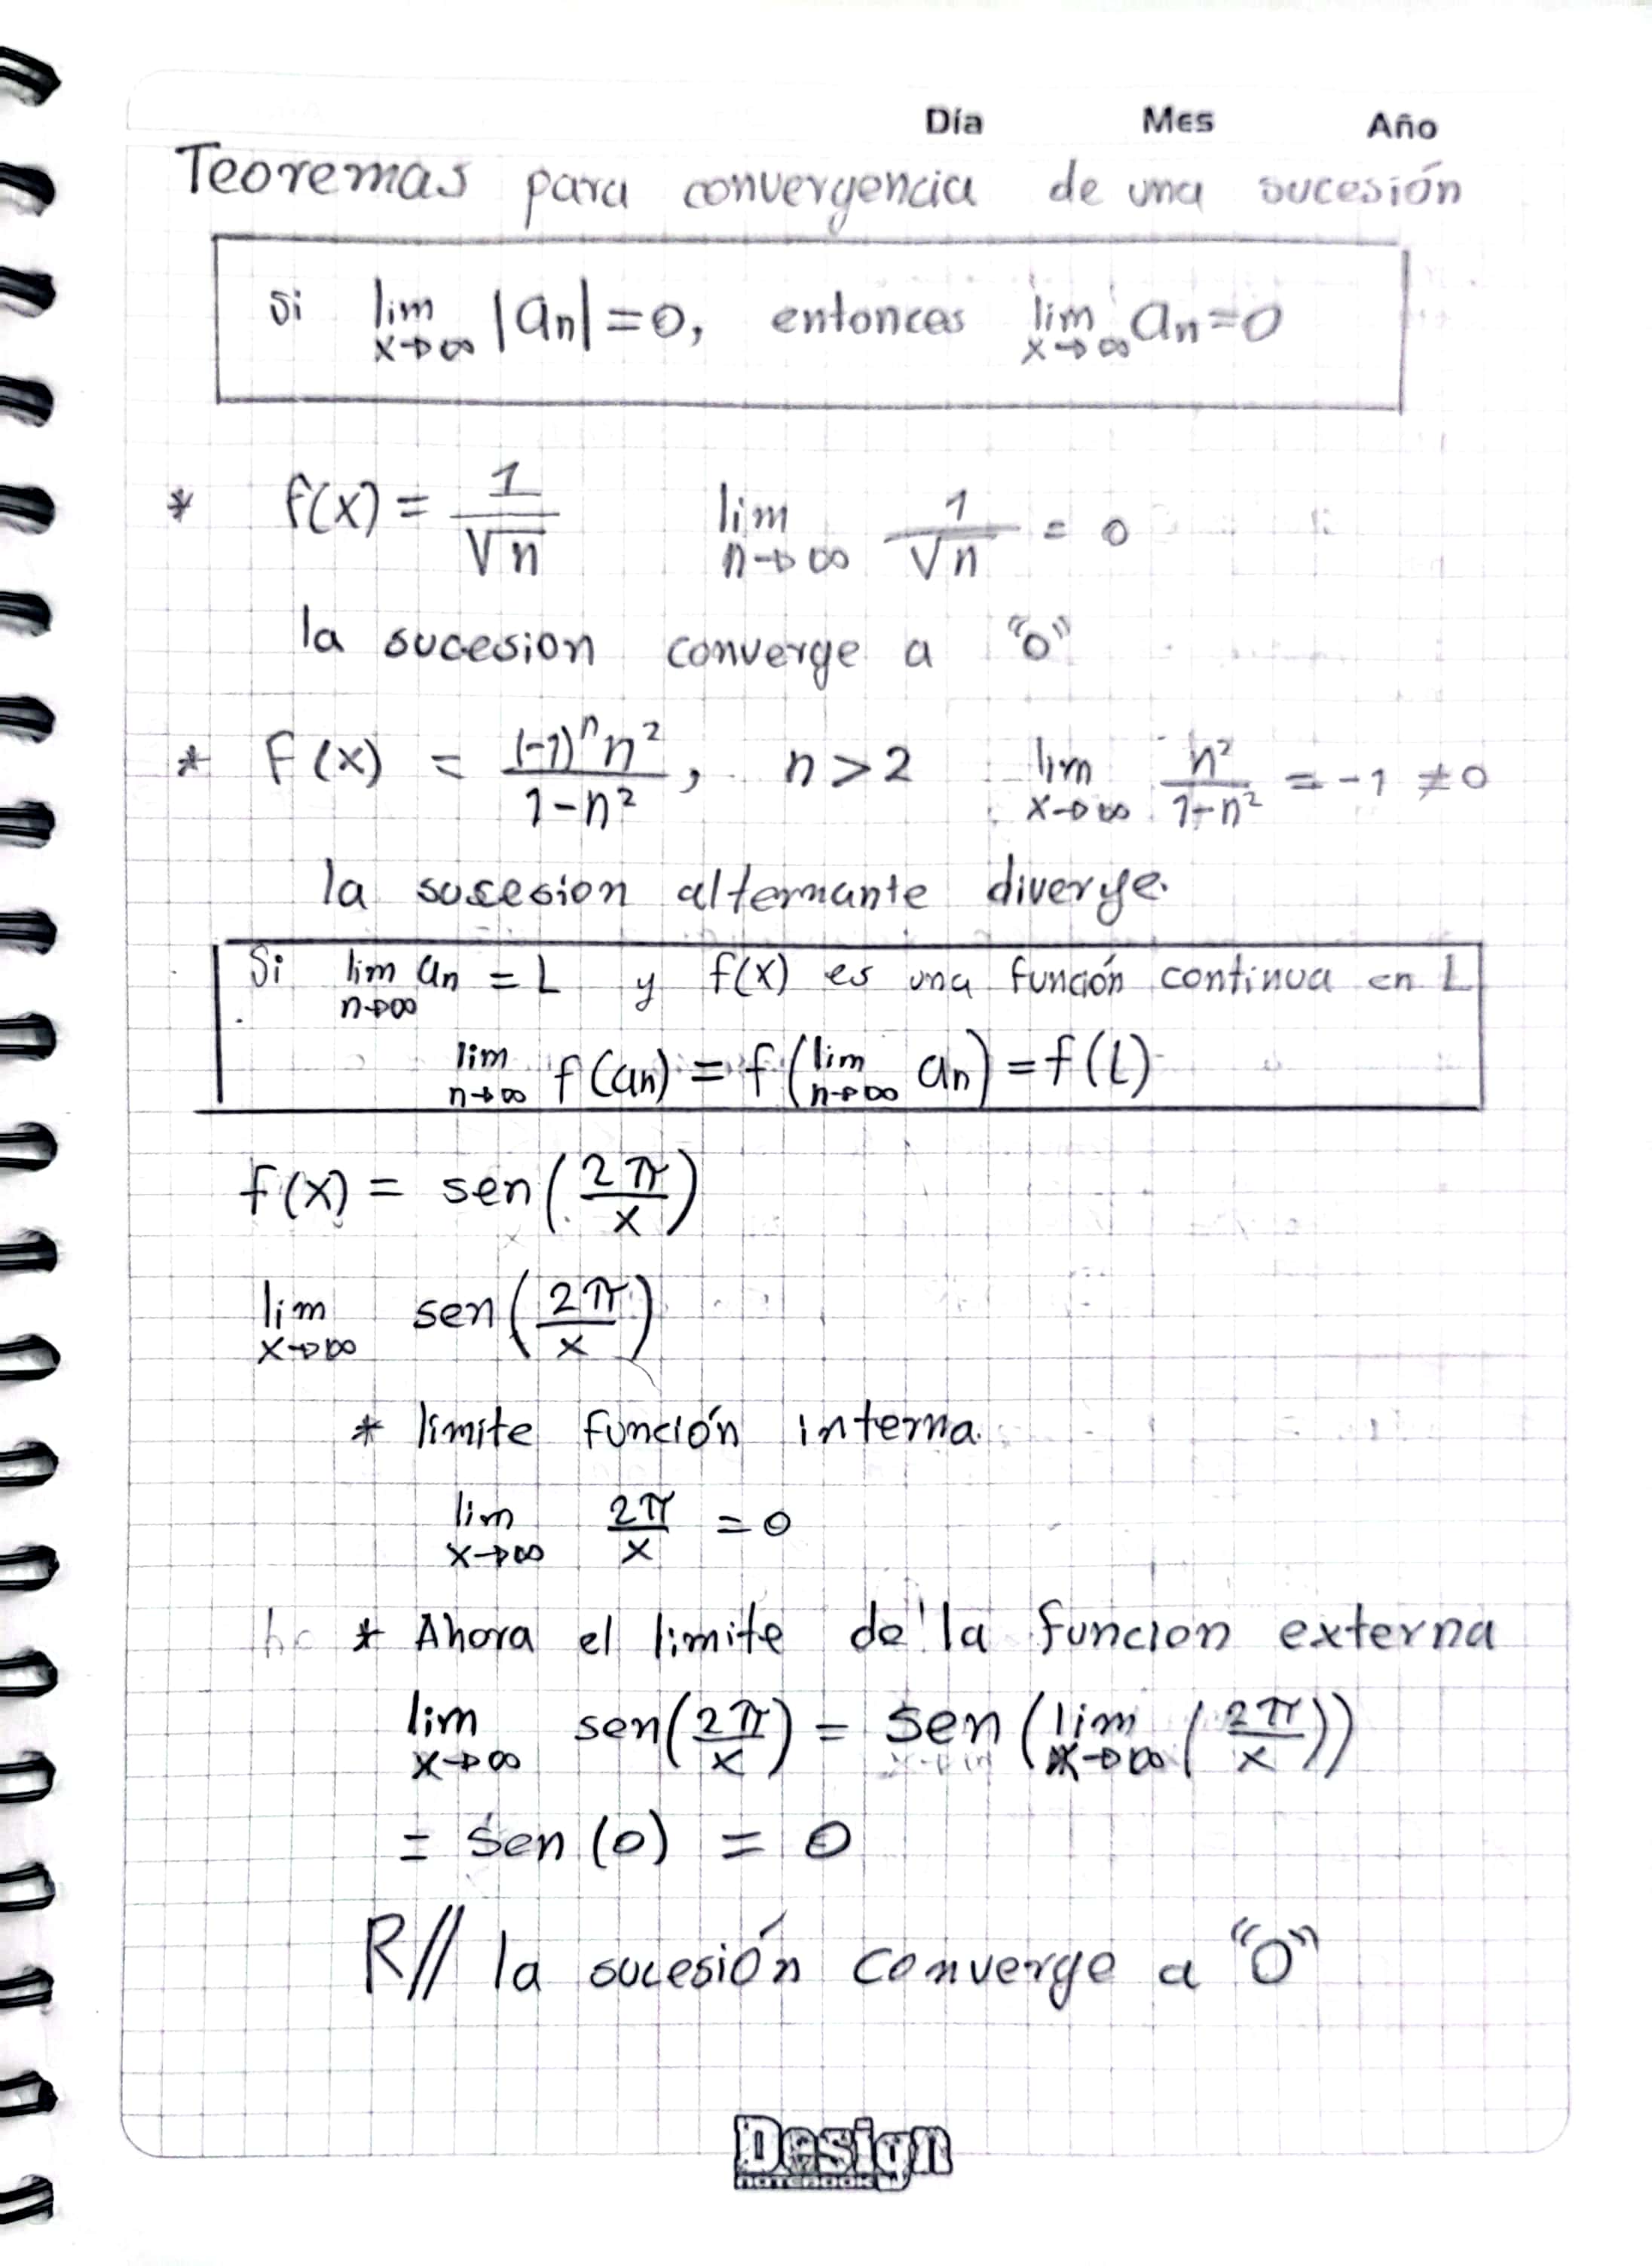 Día Mes Año
Teoremas para convergencia de una sucesión
Si lim x→∞ |an| = 0, entonces lim x→∞ an = 0
* f(x) = 1/√n lim n→∞ 1/√n = 0
la sucesion converge a "0"
* F(x) = (-1)^n n²/(1-n²), n > 2 lim x→∞ n²/(1-n²) = -1 ≠ 0
la sucesion alternante diverge.
Si lim n→∞ an = L y f(x) es una función continua en L
lim n→∞ f(an) = f(lim n→∞ an) = f(L)
f(x) = sen(2π/x)
lim x→∞ sen(2π/x)
* limite función interna.
lim x→∞ 2π/x = 0
* Ahora el limite de la funcion externa
lim x→∞ sen(2π/x) = sen(lim x→∞ (2π/x))
= sen(0) = 0
R// la sucesión converge a "0"
Design
NOTEBOOK